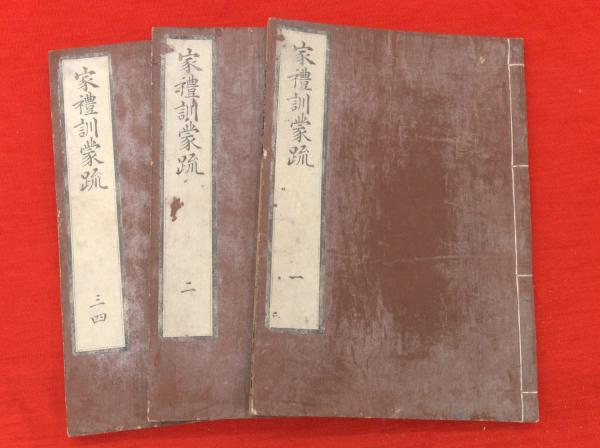 家禮訓蒙疏
一
家禮訓蒙疏
二
家禮訓蒙疏
三四